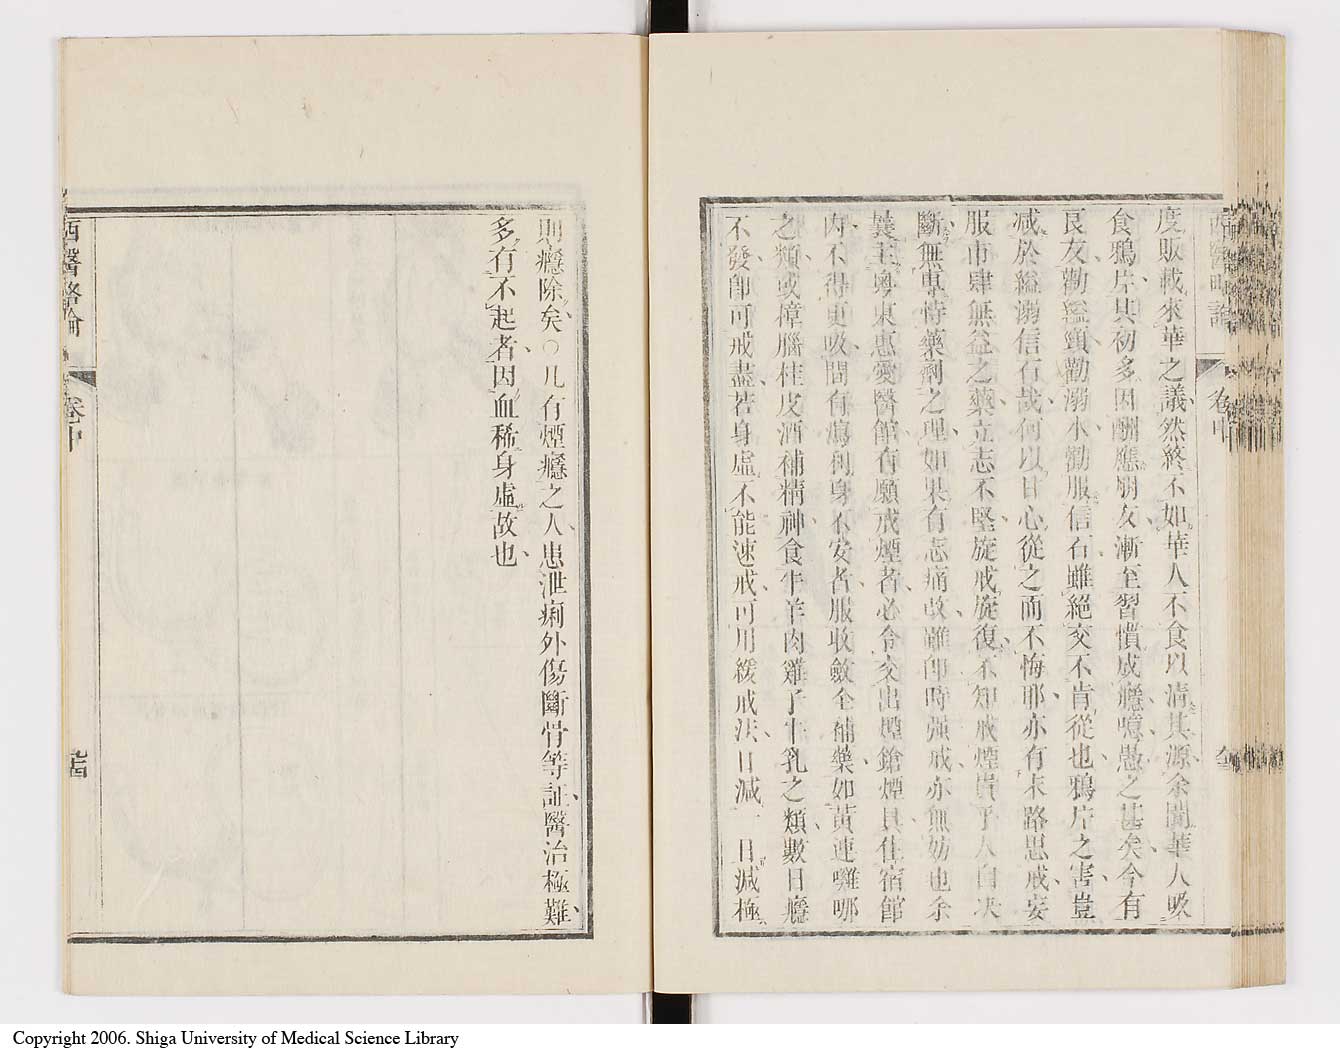 度販載來華之議然終不如華人不食以清其源余聞華人吸
食鴉片其初多因酬應朋友漸至習慣成癮噫愚之甚矣今有
良友勸縊頸勸溺水勸服信石雖絕交不肯從也鴉片之害豈
減於縊溺信石哉何以甘心從之而不悔耶亦有末路思戒妄
服市肆無益之藥立志不堅旋戒旋復不知戒煙貴乎人自决
斷無專恃藥劑之理如果有志痛改雖即時强戒亦無妨也余
曩至粵東惠愛醫館有願戒煙者必令交出煙鎗煙具住宿館
內不得更吸間有瀉利身不安者服收斂全補藥如黃連囄哪
之類或樟腦桂皮酒補精神食牛羊肉雞子牛乳之類數日癮
不發即可戒盡若身虛不能速戒可用緩戒法日減一日減極
西醫略論
卷中
則癮除矣○凡有煙癮之人患泄痢外傷斷骨等証醫治極難
多有不起者因血稀身虛故也
西醫略論
卷中
Copyright 2006. Shiga University of Medical Science Library